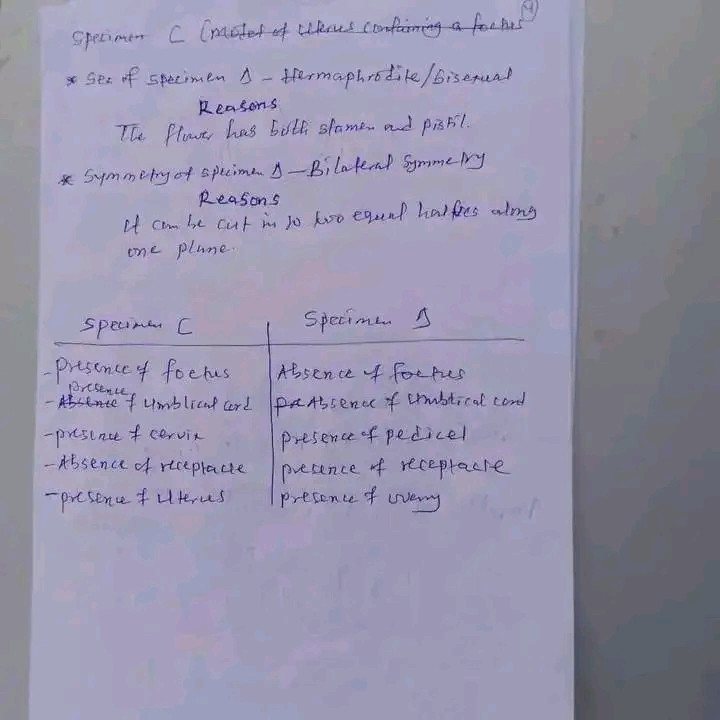 4
Specimen C (model of Uterus containing a foetus
* Sex of specimen D - Hermaphrodite/Bisexual
Reasons
The flower has both stamen and pistil.
* Symmetry of specimen D - Bilateral Symmetry
Reasons
It can be cut in to two equal halfies along
one plane.
Specimen C | Specimen D
- Presence of foetus | Absence of foetus
presence
- Absence of Umblical cord | pre Absence of Umblical cord
- presence of cervix | presence of pedicel
- Absence of receptacle | presence of receptacle
- presence of Uterus | presence of ovary